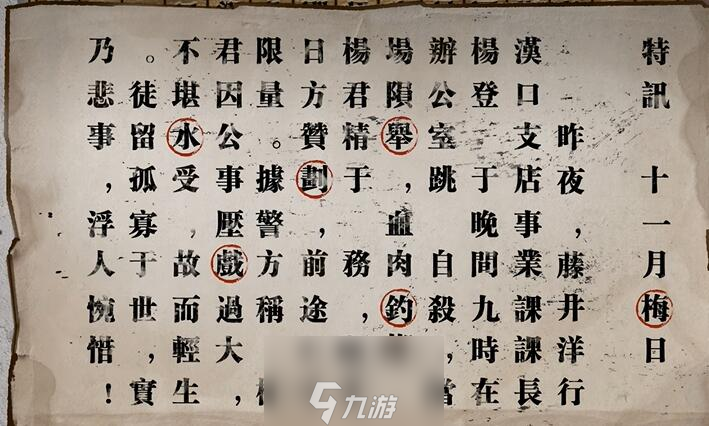 特訊 十一月梅日
昨夜，藤井洋行
漢口支店事業課課長
楊登 于晚間九時在
辦公室跳 自殺，當
場隕舉，血肉釣
楊君精于 務，
日方贊劃，前途
限量。據警，方稱
君因公事壓戲過大，
不堪水受，故而輕生
。徒留孤寡于世，實
乃悲事，浮人惋惜！
九游